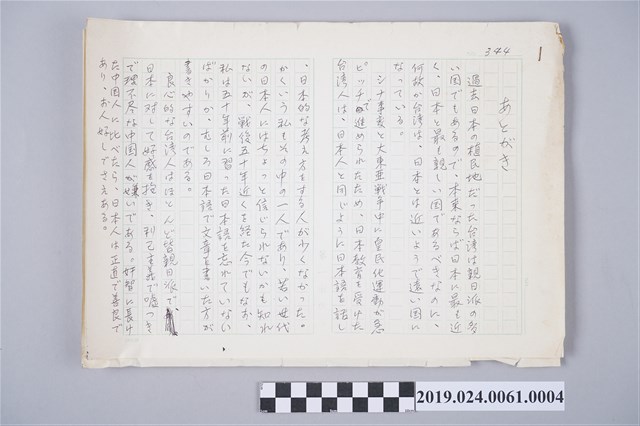 344
あとがき
過去日本の植民地だった台湾は親日派の多
い国でもあるので、本来ならば日本に最も近
く、日本と最も親しい国であるべきなのに、
何故か台湾は、日本とは近いようで遠い国に
なっている。
シナ事変と大東亜戦争中に皇民化運動が急
ピッチで進められたため、日本教育を受けた
台湾人は、日本人と同じように日本語を話し
、日本的な考え方をする人が少くなかった。
かくいう私もその中の一人であり、若い世代
の日本人にはちょっと信じられないかも知れ
ないが、戦後五十年近くを経た今でもなお、
私は五十年前に習った日本語を忘れていない
ばかりか、むしろ日本語で文章を書いた方が
書きやすいのである。
良心的な台湾人はほとんど皆親日派で、
日本に対して好感を抱き、利己主義で嘘つき
で理不尽な中国人が嫌いである。奸智に長け
た中国人に比べたら、日本人は正直で善良で
あり、お人好しでさえある。
2019.024.0061.0004